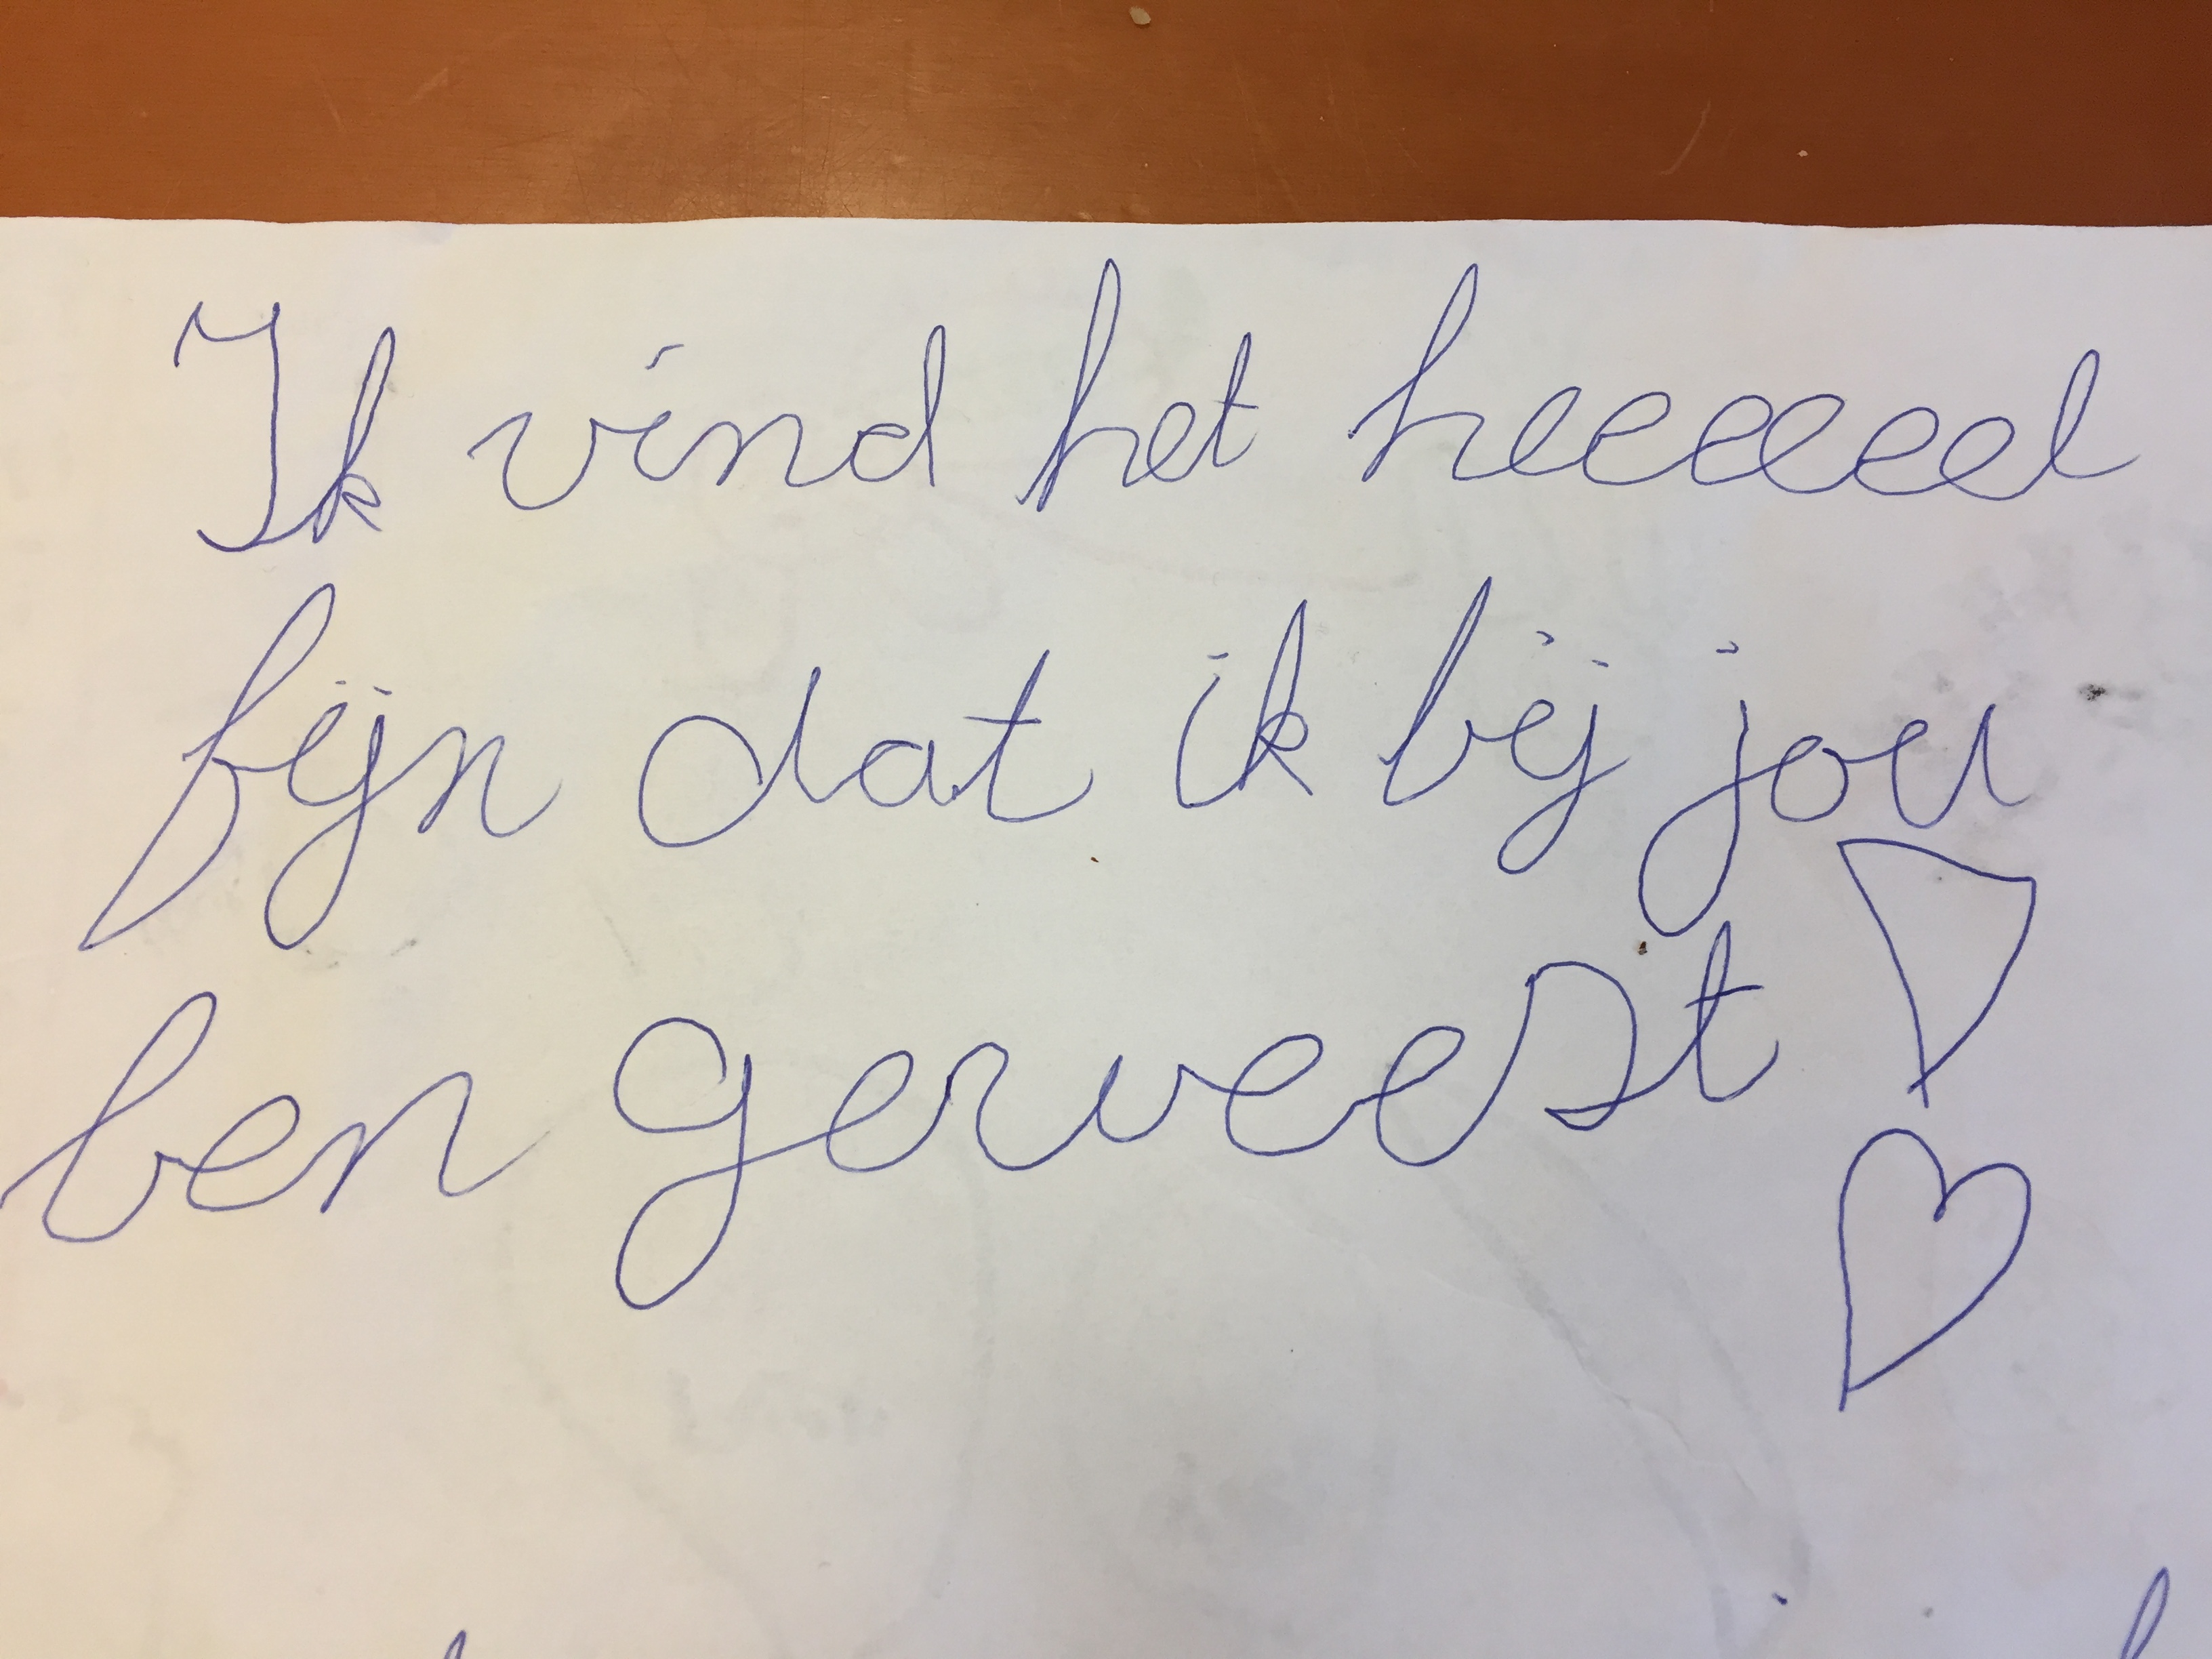 Ik vind het heeeeeel
fijn dat ik bij jou
ben geweest